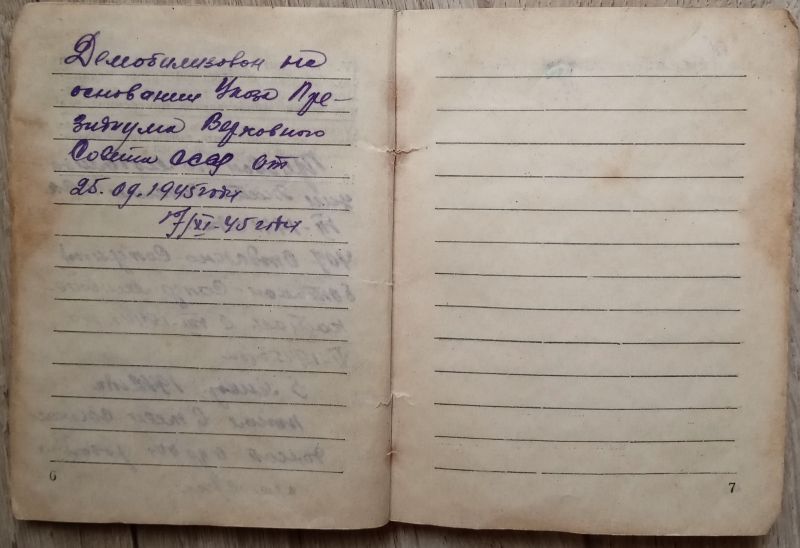 Демобилизован на
основании Указа Пре-
зидиума Верховного
Совета СССР от
25.09.1945 года
17/XI-45 года
6
7